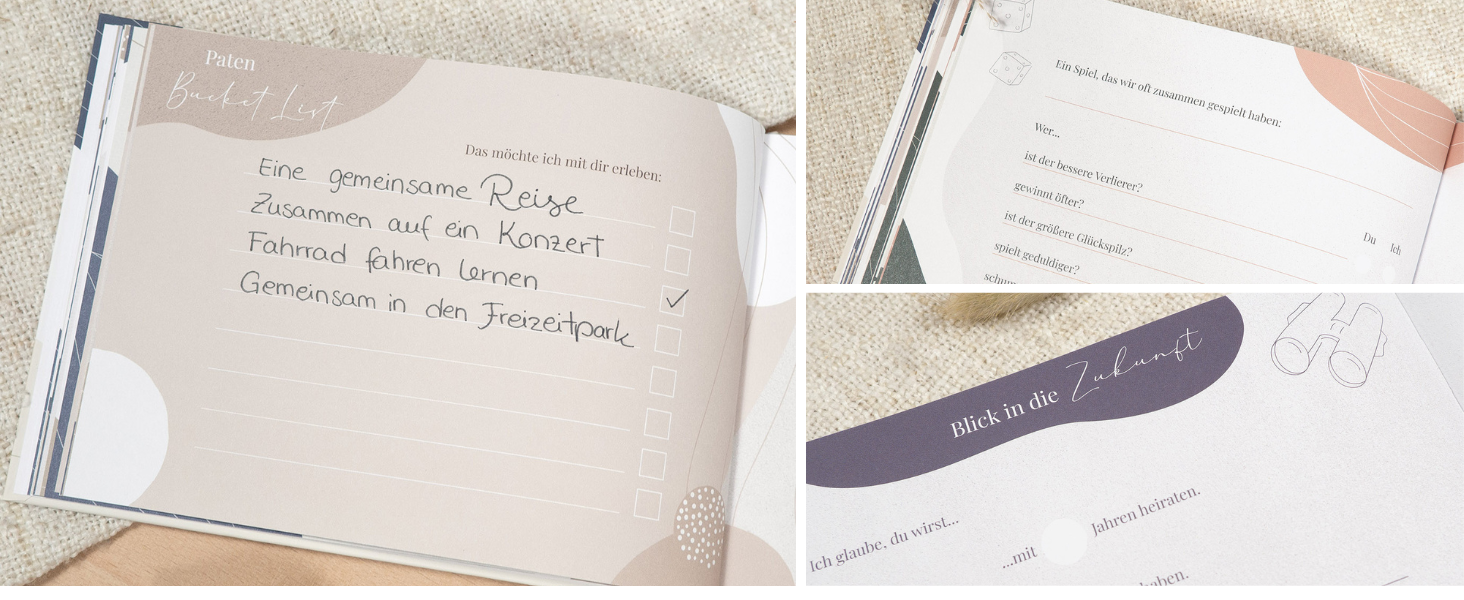 Paten
Bucket List
Das möchte ich mit dir erleben:
Eine gemeinsame Reise
Zusammen auf ein Konzert
Fahrrad fahren lernen
Gemeinsam in den Freizeitpark
Ein Spiel, das wir oft zusammen gespielt haben:
Wer...
Du Ich
ist der bessere Verlierer?
gewinnt öfter?
ist der größere Glückspilz?
spielt geduldiger?
Blick in die Zukunft
Ich glaube, du wirst...
...mit Jahren heiraten.
haben.